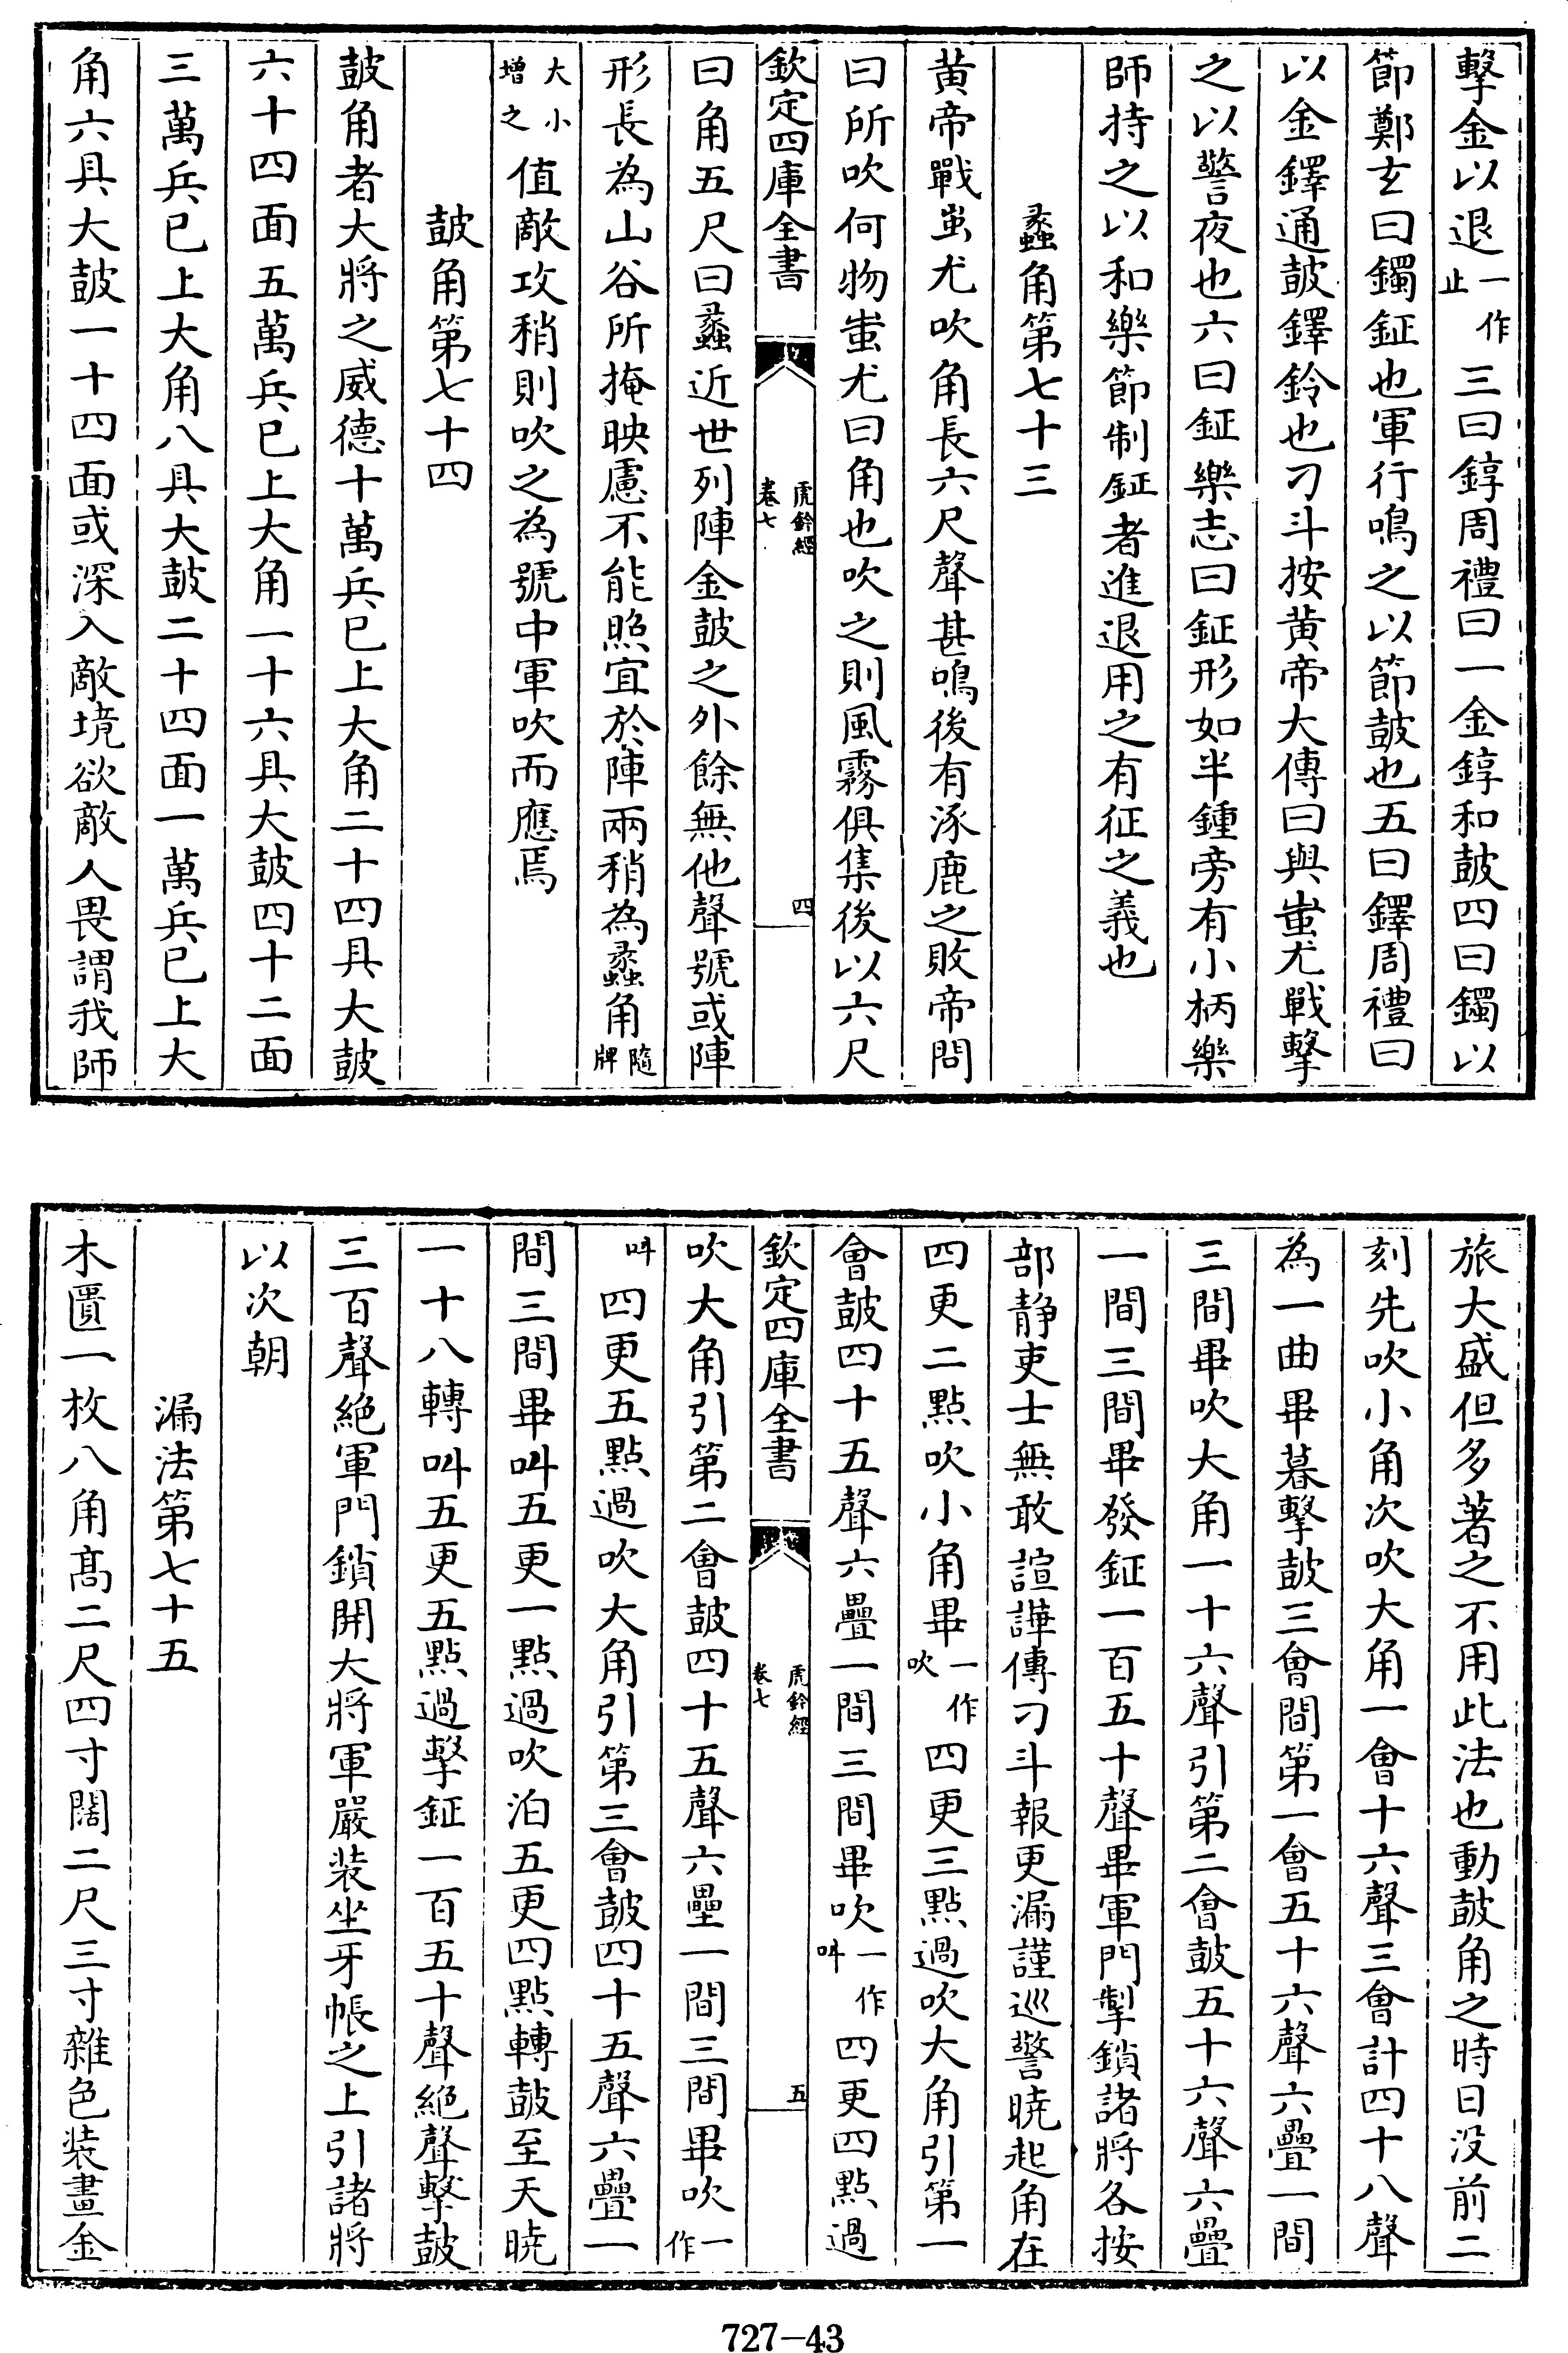 擊金以退一作止三曰錞周禮曰一金錞和鼓四曰鐲以
節鄭玄曰鐲鉦也軍行鳴之以節鼓也五曰鐸周禮曰
以金鐸通鼓鐸鈴也刁斗按黄帝大傳曰與蚩尤戰擊
之以警夜也六曰鉦樂志曰鉦形如半鍾旁有小柄樂
師持之以和樂節制鉦者進退用之有征之義也
蠡角第七十三
黄帝戰蚩尤吹角長六尺聲甚鳴後有涿鹿之敗帝問
曰所吹何物蚩尤曰角也吹之則風霧俱集後以六尺
欽定四庫全書 虎鈐經 卷七 四
曰角五尺曰蠡近世列陣金鼓之外餘無他聲號或陣
形長為山谷所掩映慮不能照宜於陣兩稍為蠡角隨牌
大小增之值敵攻稍則吹之為號中軍吹而應焉
鼓角第七十四
鼓角者大將之威德十萬兵已上大角二十四具大鼓
六十四面五萬兵已上大角一十六具大鼓四十二面
三萬兵已上大角八具大鼓二十四面一萬兵已上大
角六具大鼓一十四面或深入敵境欲敵人畏謂我師
旅大盛但多著之不用此法也動鼓角之時日没前二
刻先吹小角次吹大角一會十六聲三會計四十八聲
為一曲畢暮擊鼓三會間第一會五十六聲六疊一間
三間畢吹大角一十六聲引第二會鼓五十六聲六疊
一間三間畢發鉦一百五十聲畢軍門掣鎖諸將各按
部静吏士無敢諠譁傳刁斗報更漏謹巡警曉起角在
四更二點吹小角畢一作吹四更三點過吹大角引第一
會鼓四十五聲六疊一間三間畢吹一作叫四更四點過
欽定四庫全書 虎鈐經 卷七 五
吹大角引第二會鼓四十五聲六壘一間三間畢吹一作
叫四更五點過吹大角引第三會鼓四十五聲六疊一
間三間畢叫五更一點過吹泊五更四點轉鼓至天曉
一十八轉叫五更五點過擊鉦一百五十聲絕聲擊鼓
三百聲絕軍門鎖開大將軍嚴装坐牙帳之上引諸將
以次朝
漏法第七十五
木匱一枚八角髙二尺四寸闊二尺三寸雜色装畫金
727-43